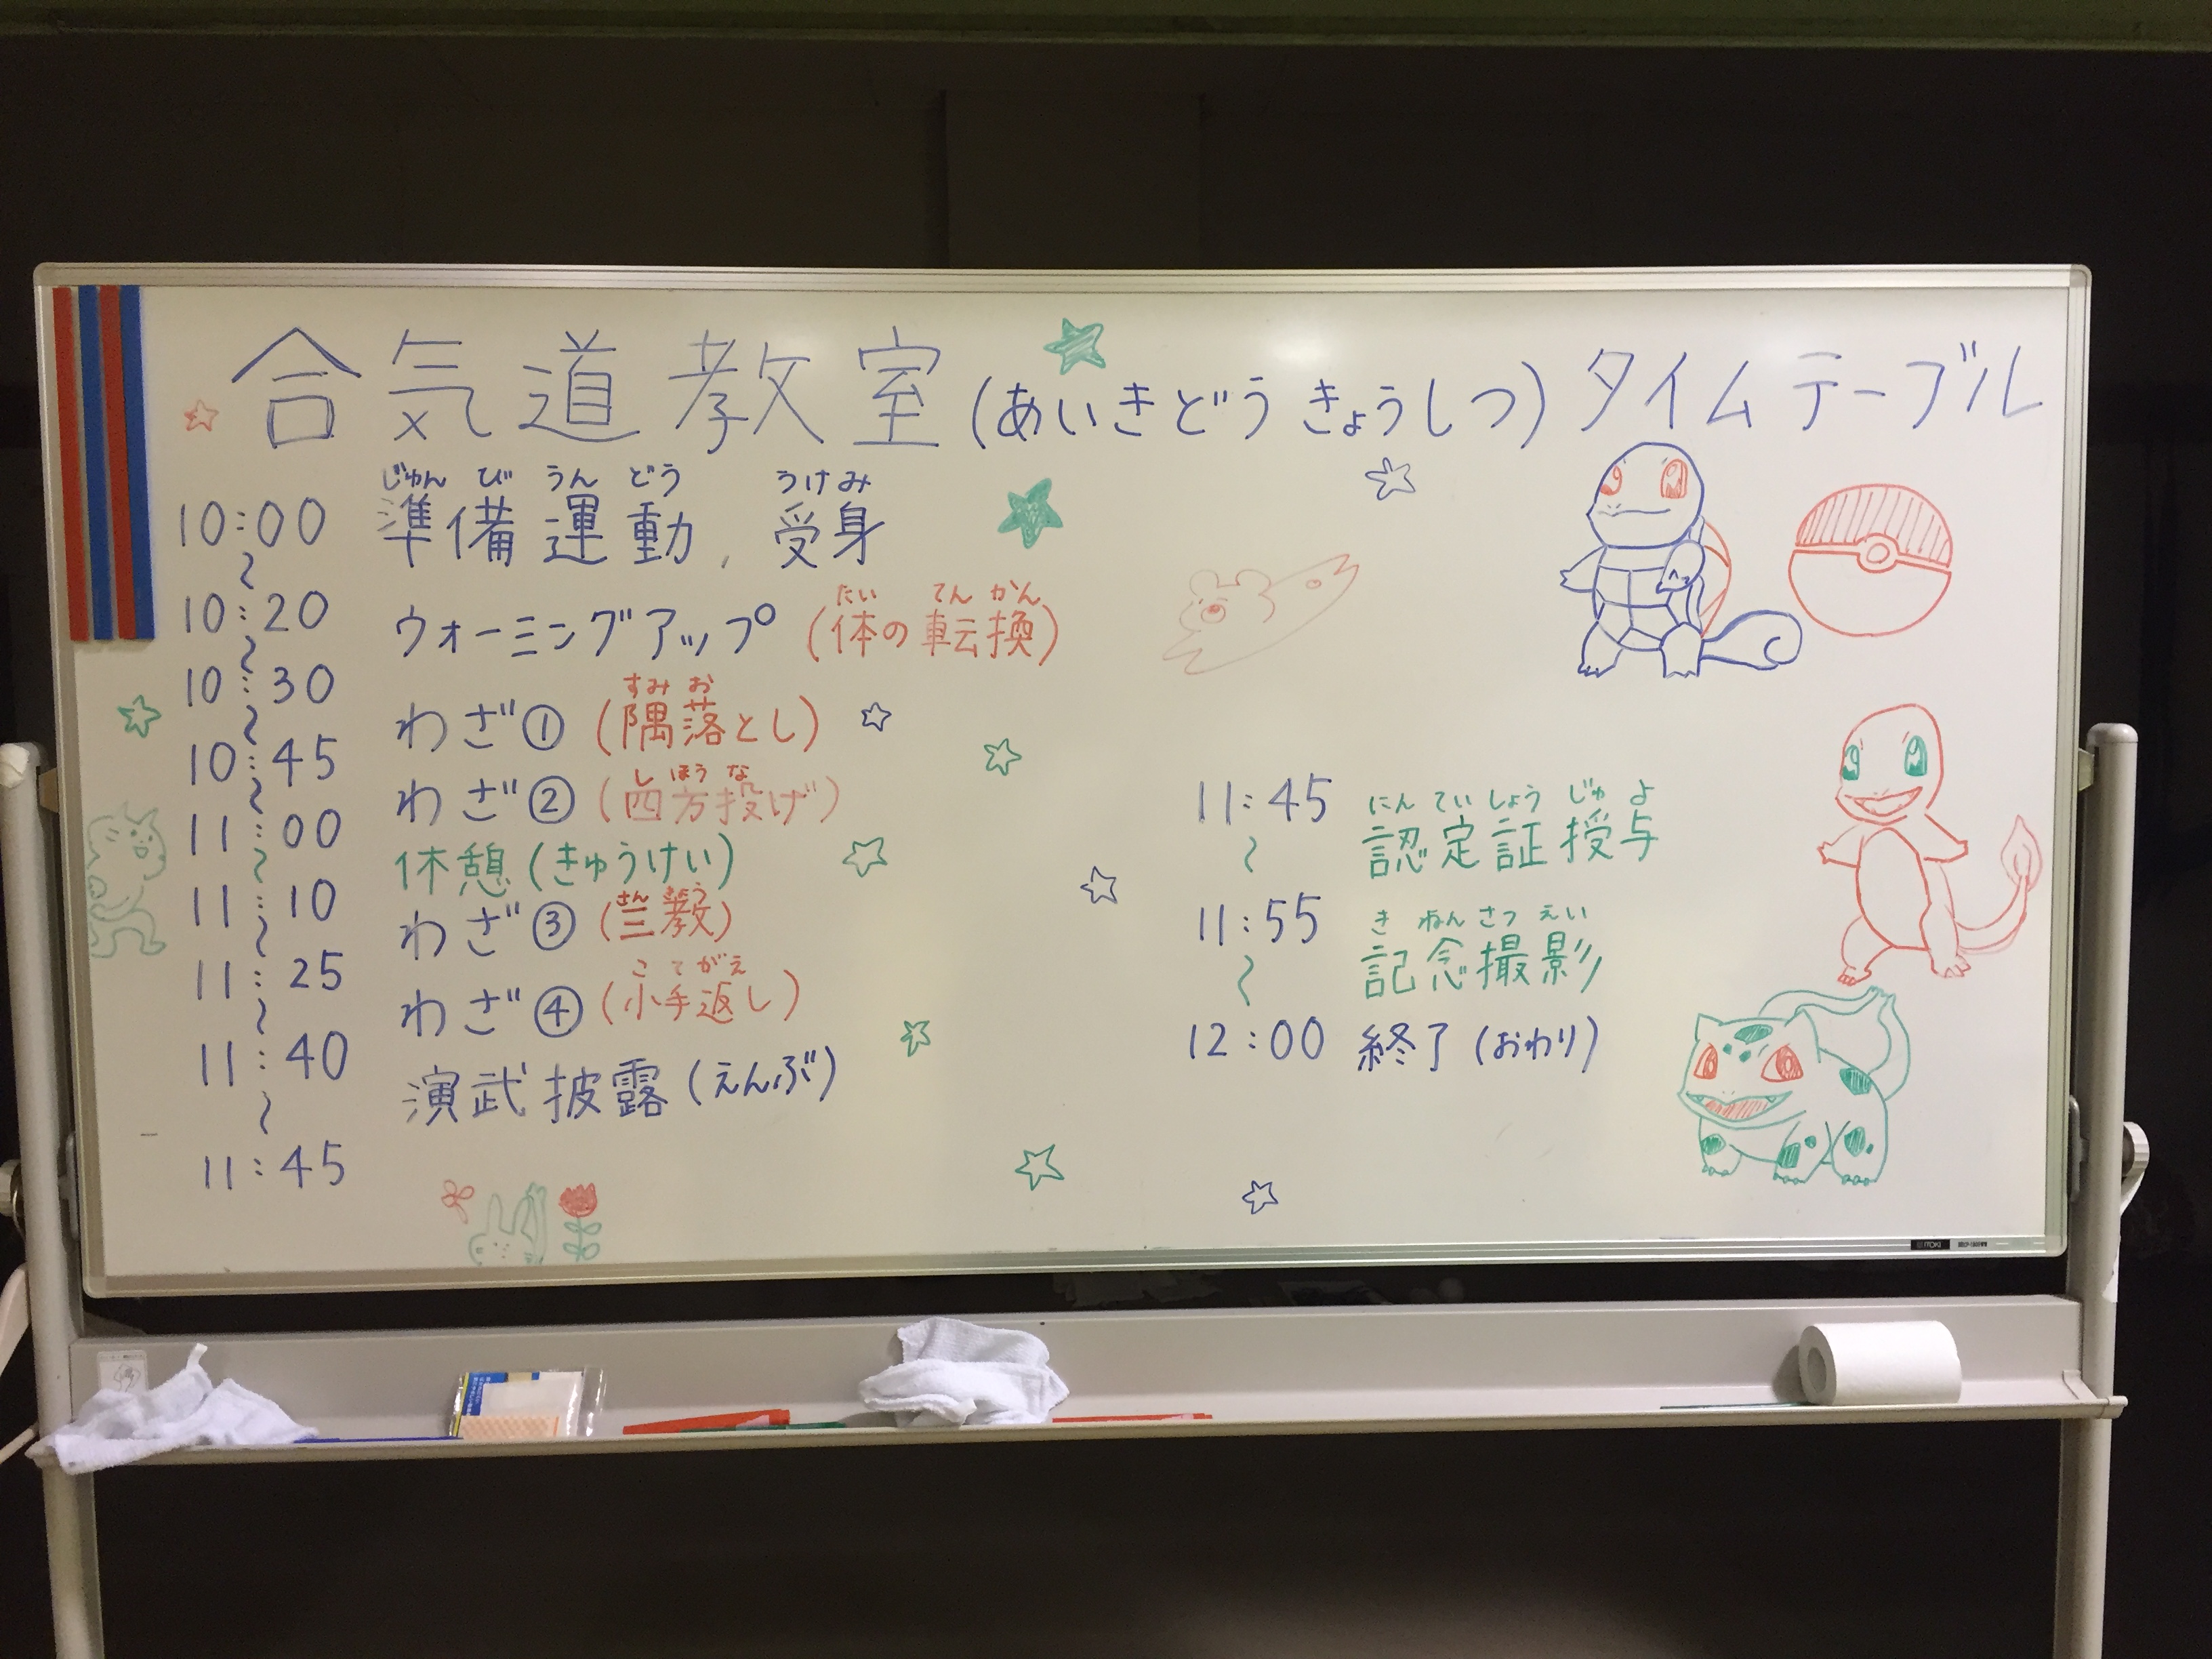 合気道教室(あいきどう きょうしつ) タイムテーブル
じゅん び うん どう うけみ
10:00 準備運動、受身
〜
たい てん かん
10:20 ウォーミングアップ (体の転換)
〜
すみ お
10:30 わざ① (隅落とし)
〜
し ほう な
10:45 わざ② (四方投げ)
〜
11:00 休憩(きゅうけい)
〜
さん きょう
11:10 わざ③ (三教)
〜
こ て がえ
11:25 わざ④ (小手返し)
〜
11:40 演武披露(えんぶ)
〜
11:45
にん てい しょう じゅ よ
11:45 認定証授与
〜
き ねん さつ えい
11:55 記念撮影
〜
12:00 終了(おわり)
ITOKI